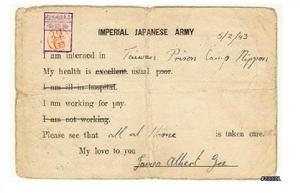 IMPERIAL JAPANESE ARMY
5/2/43
I am interned in Taiwan Prison Camp Nippon
My health is excellent. usual. poor.
I am ill in hospital.
I am working for pay.
I am not working.
Please see that all at Home is taken care.
My love to you
James Albert